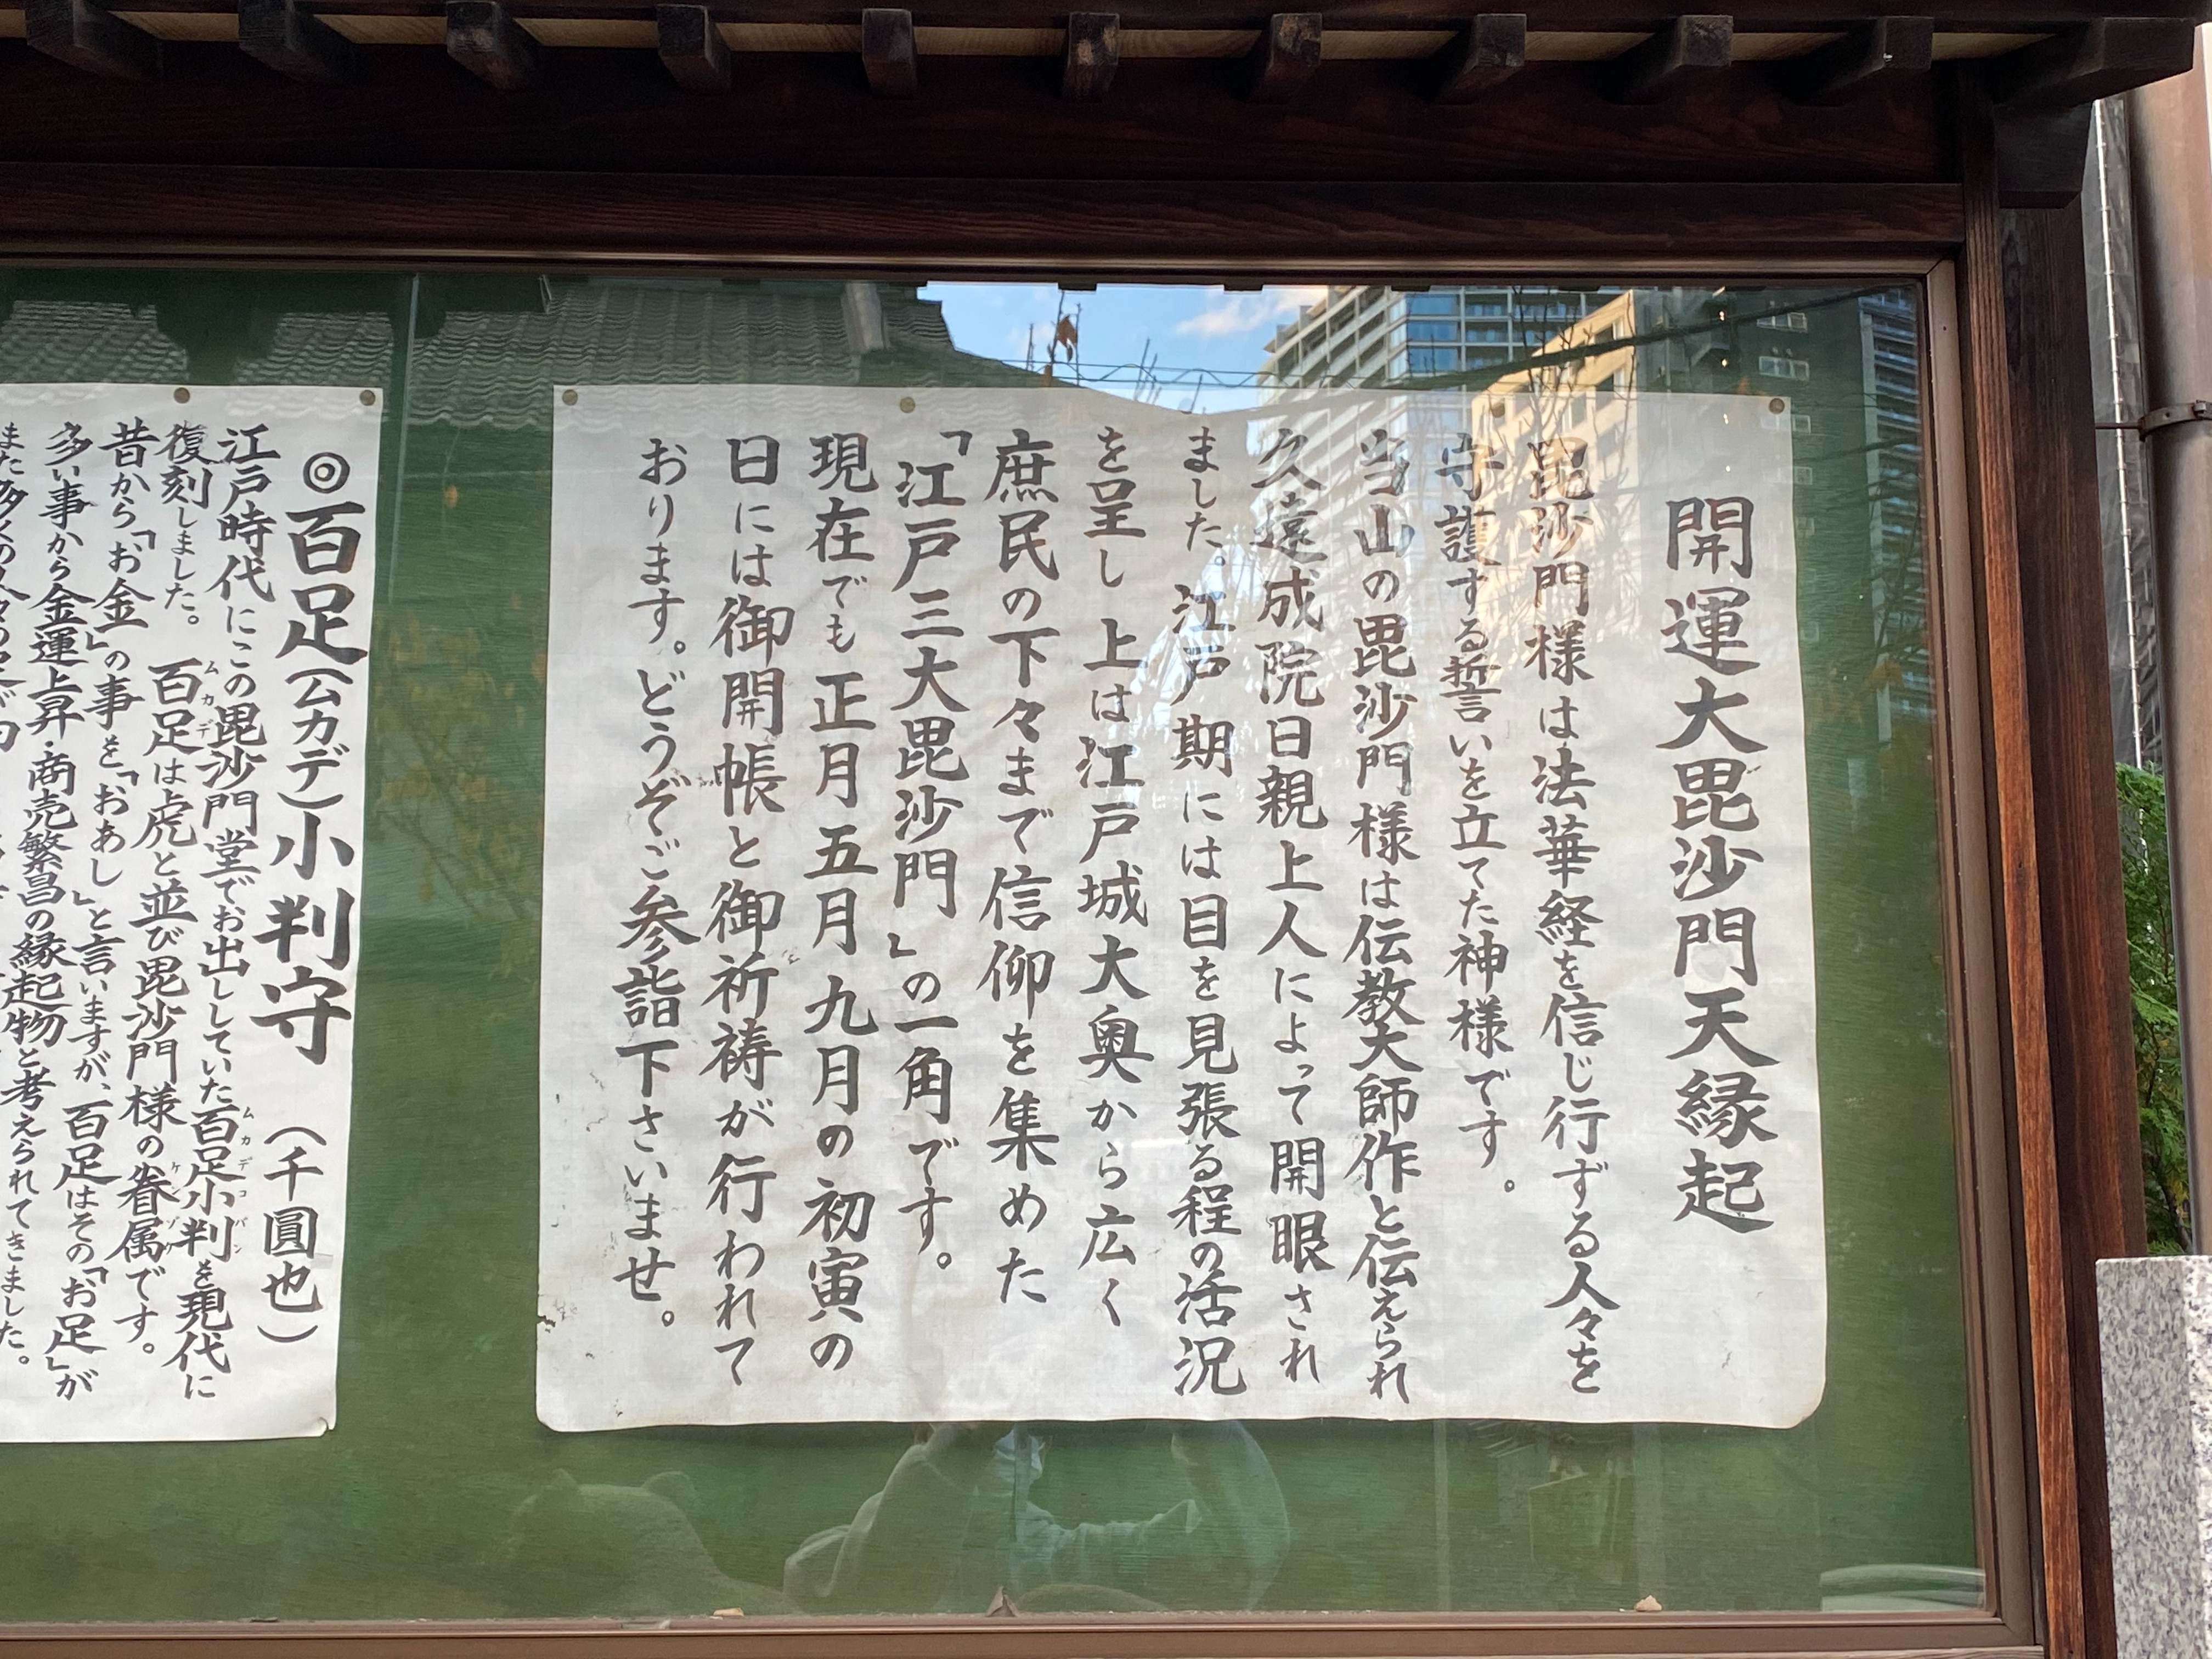 開運大毘沙門天縁起
毘沙門様は法華経を信じ行ずる人々を
守護する誓いを立てた神様です。
当山の毘沙門様は伝教大師作と伝えられ
久遠成院日親上人によって開眼され
ました。江戸期には目を見張る程の活況
を呈し上は江戸城大奥から広く
庶民の下々まで信仰を集めた
「江戸三大毘沙門」の一角です。
現在でも正月五月九月の初寅の
日には御開帳と御祈祷が行われて
おります。どうぞご参詣下さいませ。
◎百足(ムカデ)小判守 (千圓也)
江戸時代にこの毘沙門堂でお出ししていた百足小判を現代に
復刻しました。 百足は虎と並び毘沙門様の眷属です。
昔から「お金」の事を「おあし」と言いますが、百足はその「お足」が
多い事から金運上昇・商売繁昌の縁起物と考えられてきました。
また多くの